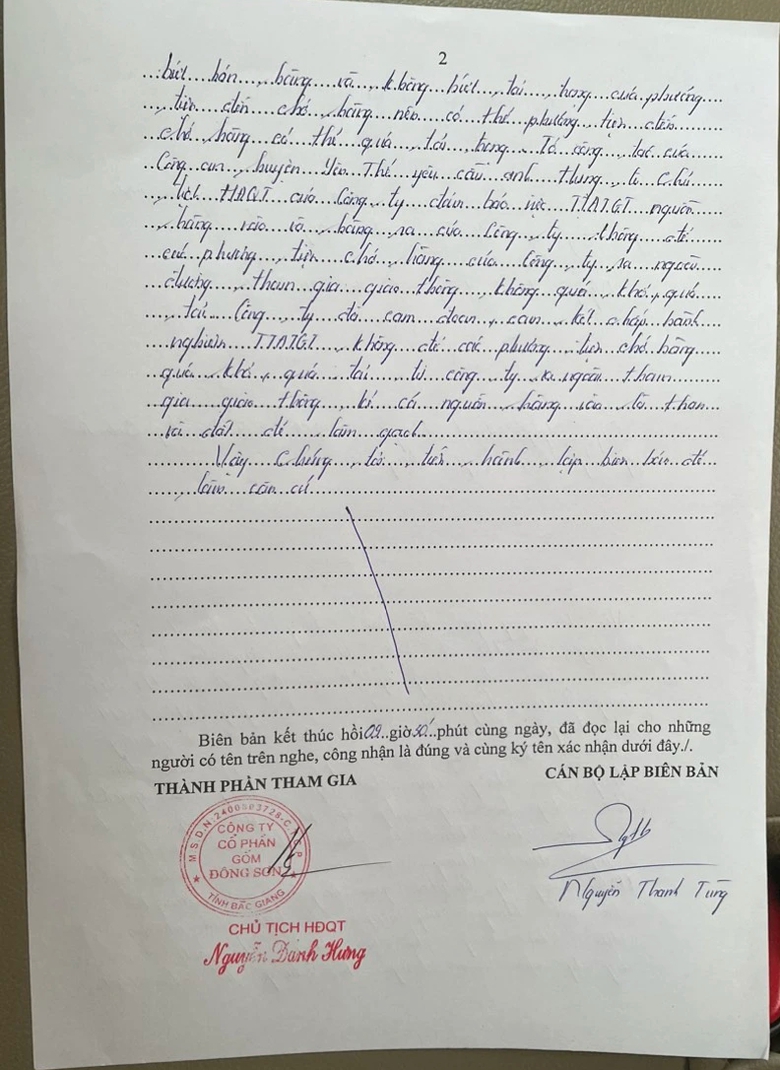 2
bút bán hàng và không bút tai hàng của phương
tiện đến chở hàng nên có thể phương tiện đến
chở hàng có thể quá tải trọng. Tổ công tác của
Công an huyện Yên Thế yêu cầu anh Hưng là Chủ
tịch HĐQT của Công ty đảm bảo việc TTATGT nguồn
hàng vào và hàng ra của Công ty không để
các phương tiện chở hàng của Công ty ra ngoài
đường tham gia giao thông không quá khổ, quá
tải Công ty đã cam đoan, cam kết chấp hành
nghiêm TTATGT không để các phương tiện chở hàng
quá khổ, quá tải từ công ty ra ngoài tham
gia giao thông kể cả nguồn hàng vào là than
và đất để làm gạch
Vậy chúng tôi tiến hành lập biên bản để
làm căn cứ
Biên bản kết thúc hồi 09 giờ 50 phút cùng ngày, đã đọc lại cho những
người có tên trên nghe, công nhận là đúng và cùng ký tên xác nhận dưới đây./.
THÀNH PHẦN THAM GIA
CÁN BỘ LẬP BIÊN BẢN
CÔNG TY
CỔ PHẦN
GỐM
ĐÔNG SƠN
TỈNH BẮC GIANG
Nguyễn Thanh Tùng
CHỦ TỊCH HĐQT
Nguyễn Danh Hưng